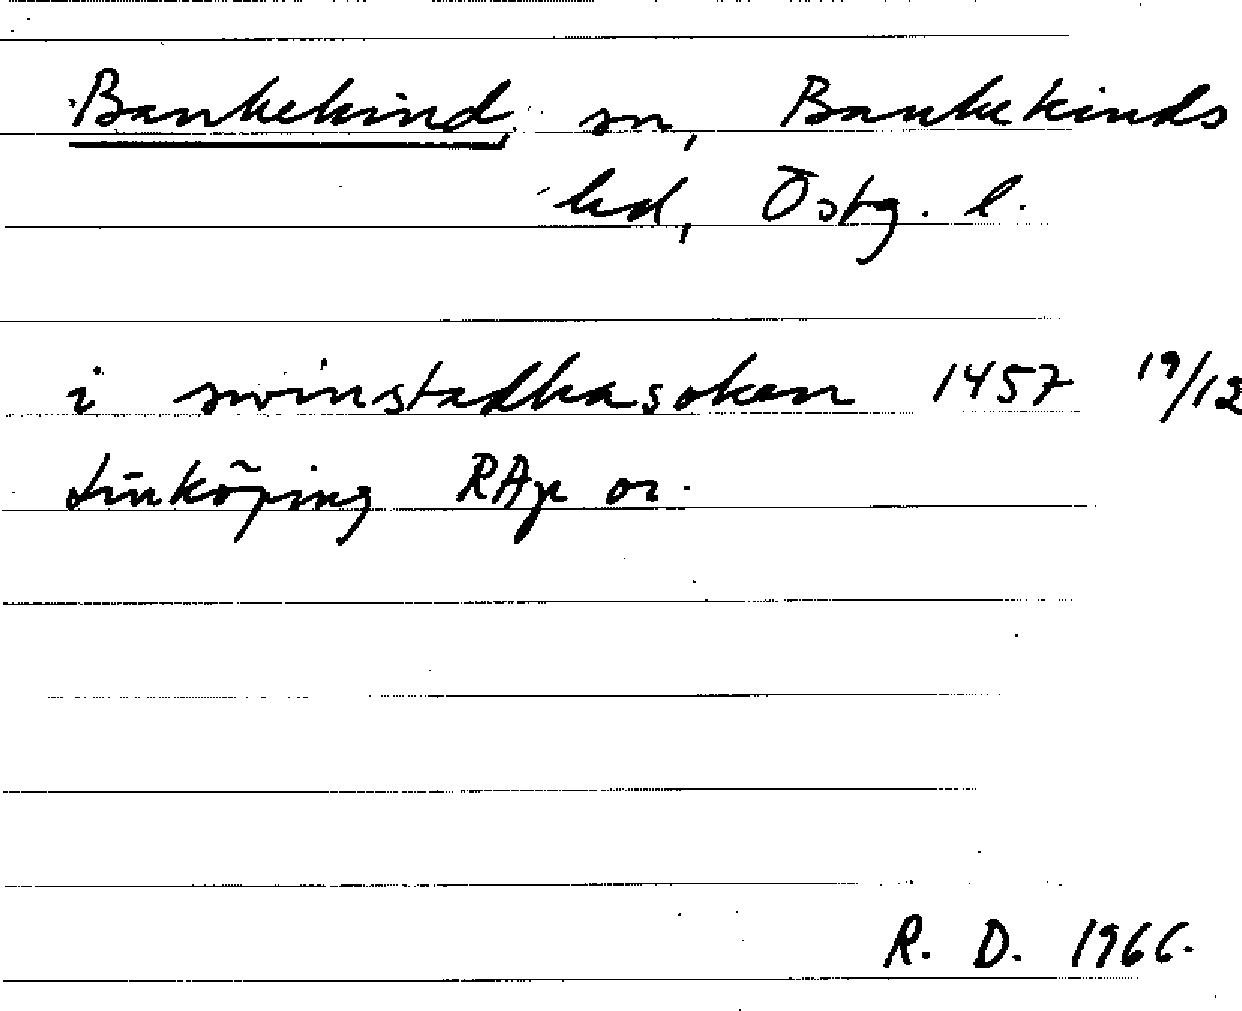 Bankekind, sn, Bankekinds
hd, Östg. l.
i swinstadhasoken 1457 19/12
Linköping RAp or.
R. D. 1966.